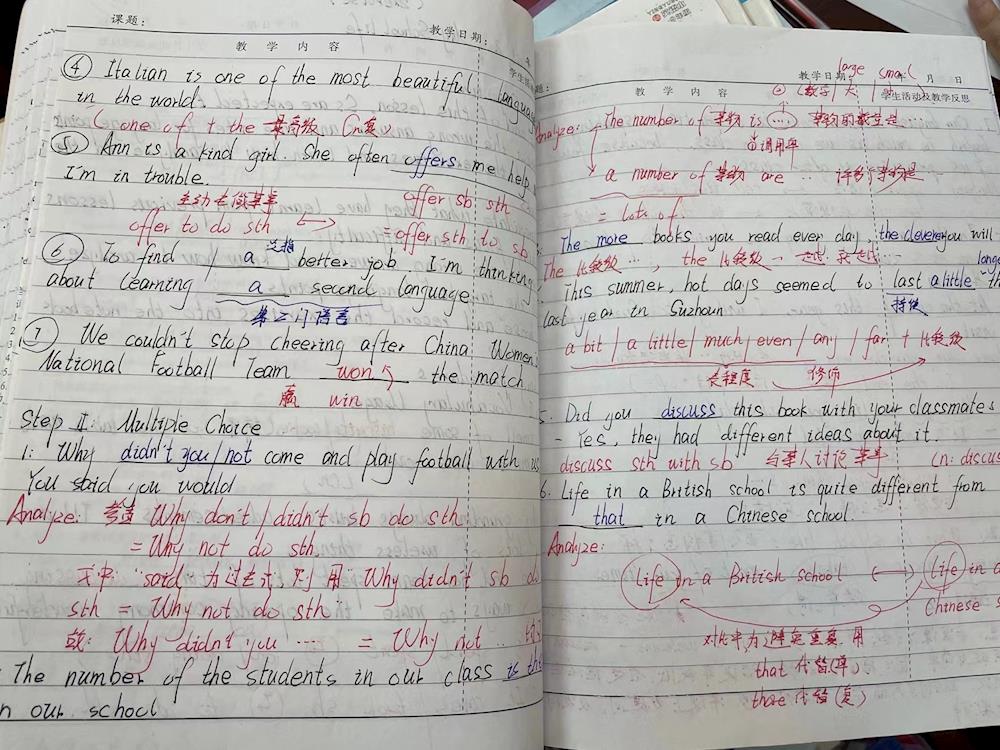 课题:
教学日期:
教 学 内 容
④ Italian is one of the most beautiful languages
in the world.
(one of + the 最高级 (n复))
⑤ Ann is a kind girl. She often offers me help
I'm in trouble.
主动去做某事
offer sb. sth
offer to do sth
= offer sth to sb
⑥ To find / a better job, I'm thinking
泛指
about learning a second language
第二门语言
⑦ We couldn't stop cheering after China Women
National Football Team won the match
赢 win
Step II: Multiple Choice
1: Why didn't you/not come and play football with us
You said you would
Analyze: 考查 Why don't / didn't sb do sth
= Why not do sth
文中: "said" 为过去式 则用 "Why didn't sb do
sth = Why not do sth"
或: Why didn't you ... = Why not ...
The number of the students in our class is
in our school
教学日期: 年 月 日
large small
教 学 内 容
学生活动及教学反思
(数字 / 大 /
Analyze: The number of 某物 is ... 某物的数量是...
a number of 某物 are ... 许多某物是
= lots of
The more books you read ever day, the clever you will
The 比较级..., the 比较级... 越...越...
This summer, hot days seemed to last a little
last year in Suzhoun
持续
a bit / a little / much / even / any / far + 比较级
表程度 修饰
5. Did you discuss this book with your classmates
- Yes, they had different ideas about it.
discuss sth with sb 与某人讨论某事 (n: discus
6. Life in a British school is quite different from
that in a Chinese school.
Analyze:
Life in a British school ⟷ Life in a
Chinese s
对比中为避免重复 用
that 代替(单)
those 代替(复)